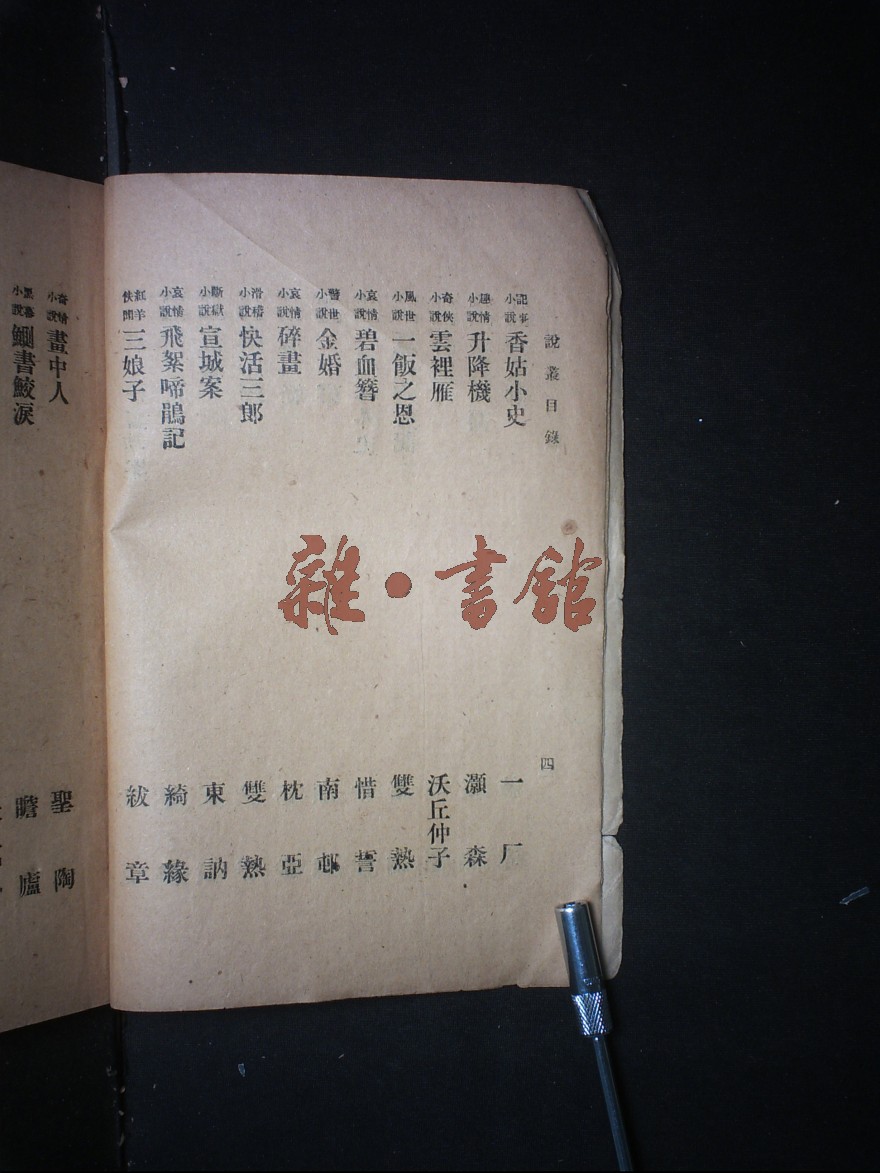 說叢目錄 四
記事小說 香姑小史 一厂
趣情小說 升降機 灝森
奇俠小說 雲裡雁 沃丘仲子
風世小說 一飯之恩 雙熱
哀情小說 碧血簪 惜誓
警世小說 金婚 南邨
哀情小說 碎畫 枕亞
滑稽小說 快活三郎 雙熱
斷獄小說 宣城案 東訥
哀情小說 飛絮啼鵑記 綺緣
紅羊佚聞 三娘子 紱章
奇情小說 畫中人 聖陶
黑幕小說 鰂書鮫淚 瞻廬
雜·書館